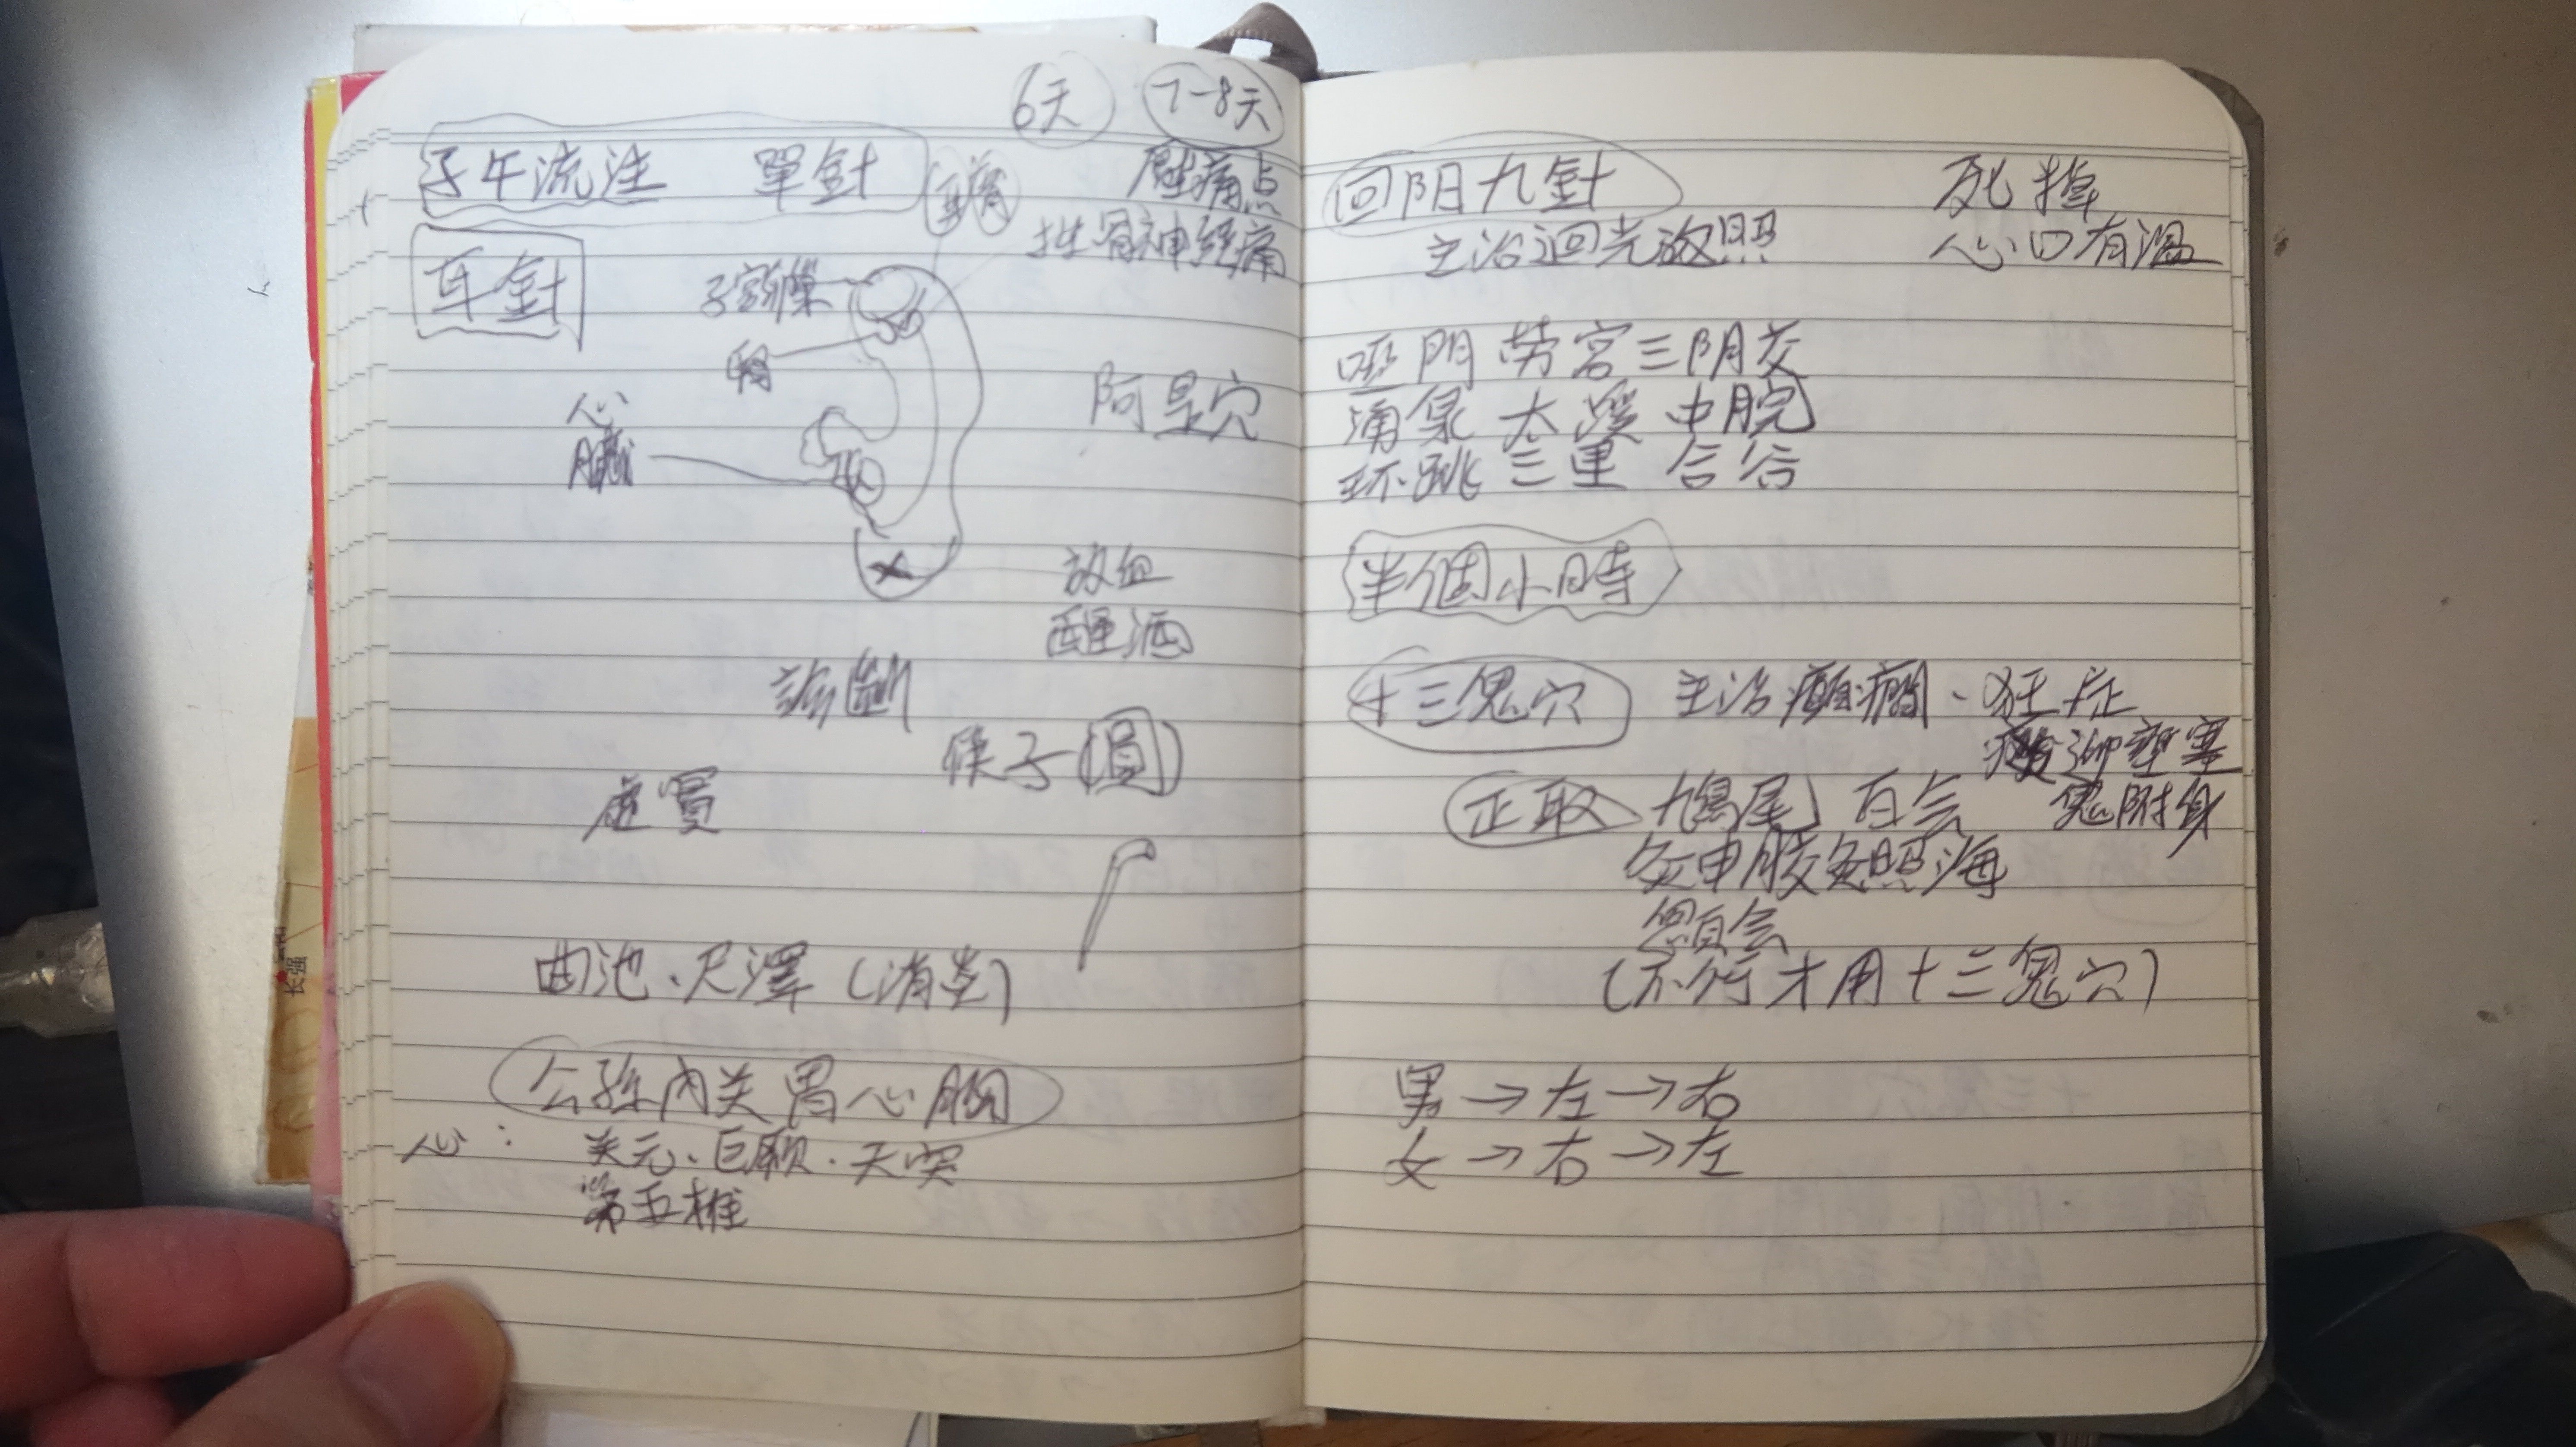 6天 7-8天
子午流注 單針
壓痛点
坐骨神經痛
耳針
腎
心
臟
阿是穴
放血
醒酒
診斷
候子(圓)
虛實
曲池、尺澤(消炎)
公孫內关胃心胸
心:
关元、巨厥、天突
第五椎
回阴九針
死掉
主治迴光返照
心口有溫
哑門 劳宮 三阴交
涌泉 太溪 中脘
环跳 三里 合谷
半個小時
十三鬼穴
主治癲癇、狂症
鬼附身
正取 鳩尾 百会
申脉 照海
(不行才用十三鬼穴)
男→左→右
女→右→左
长强